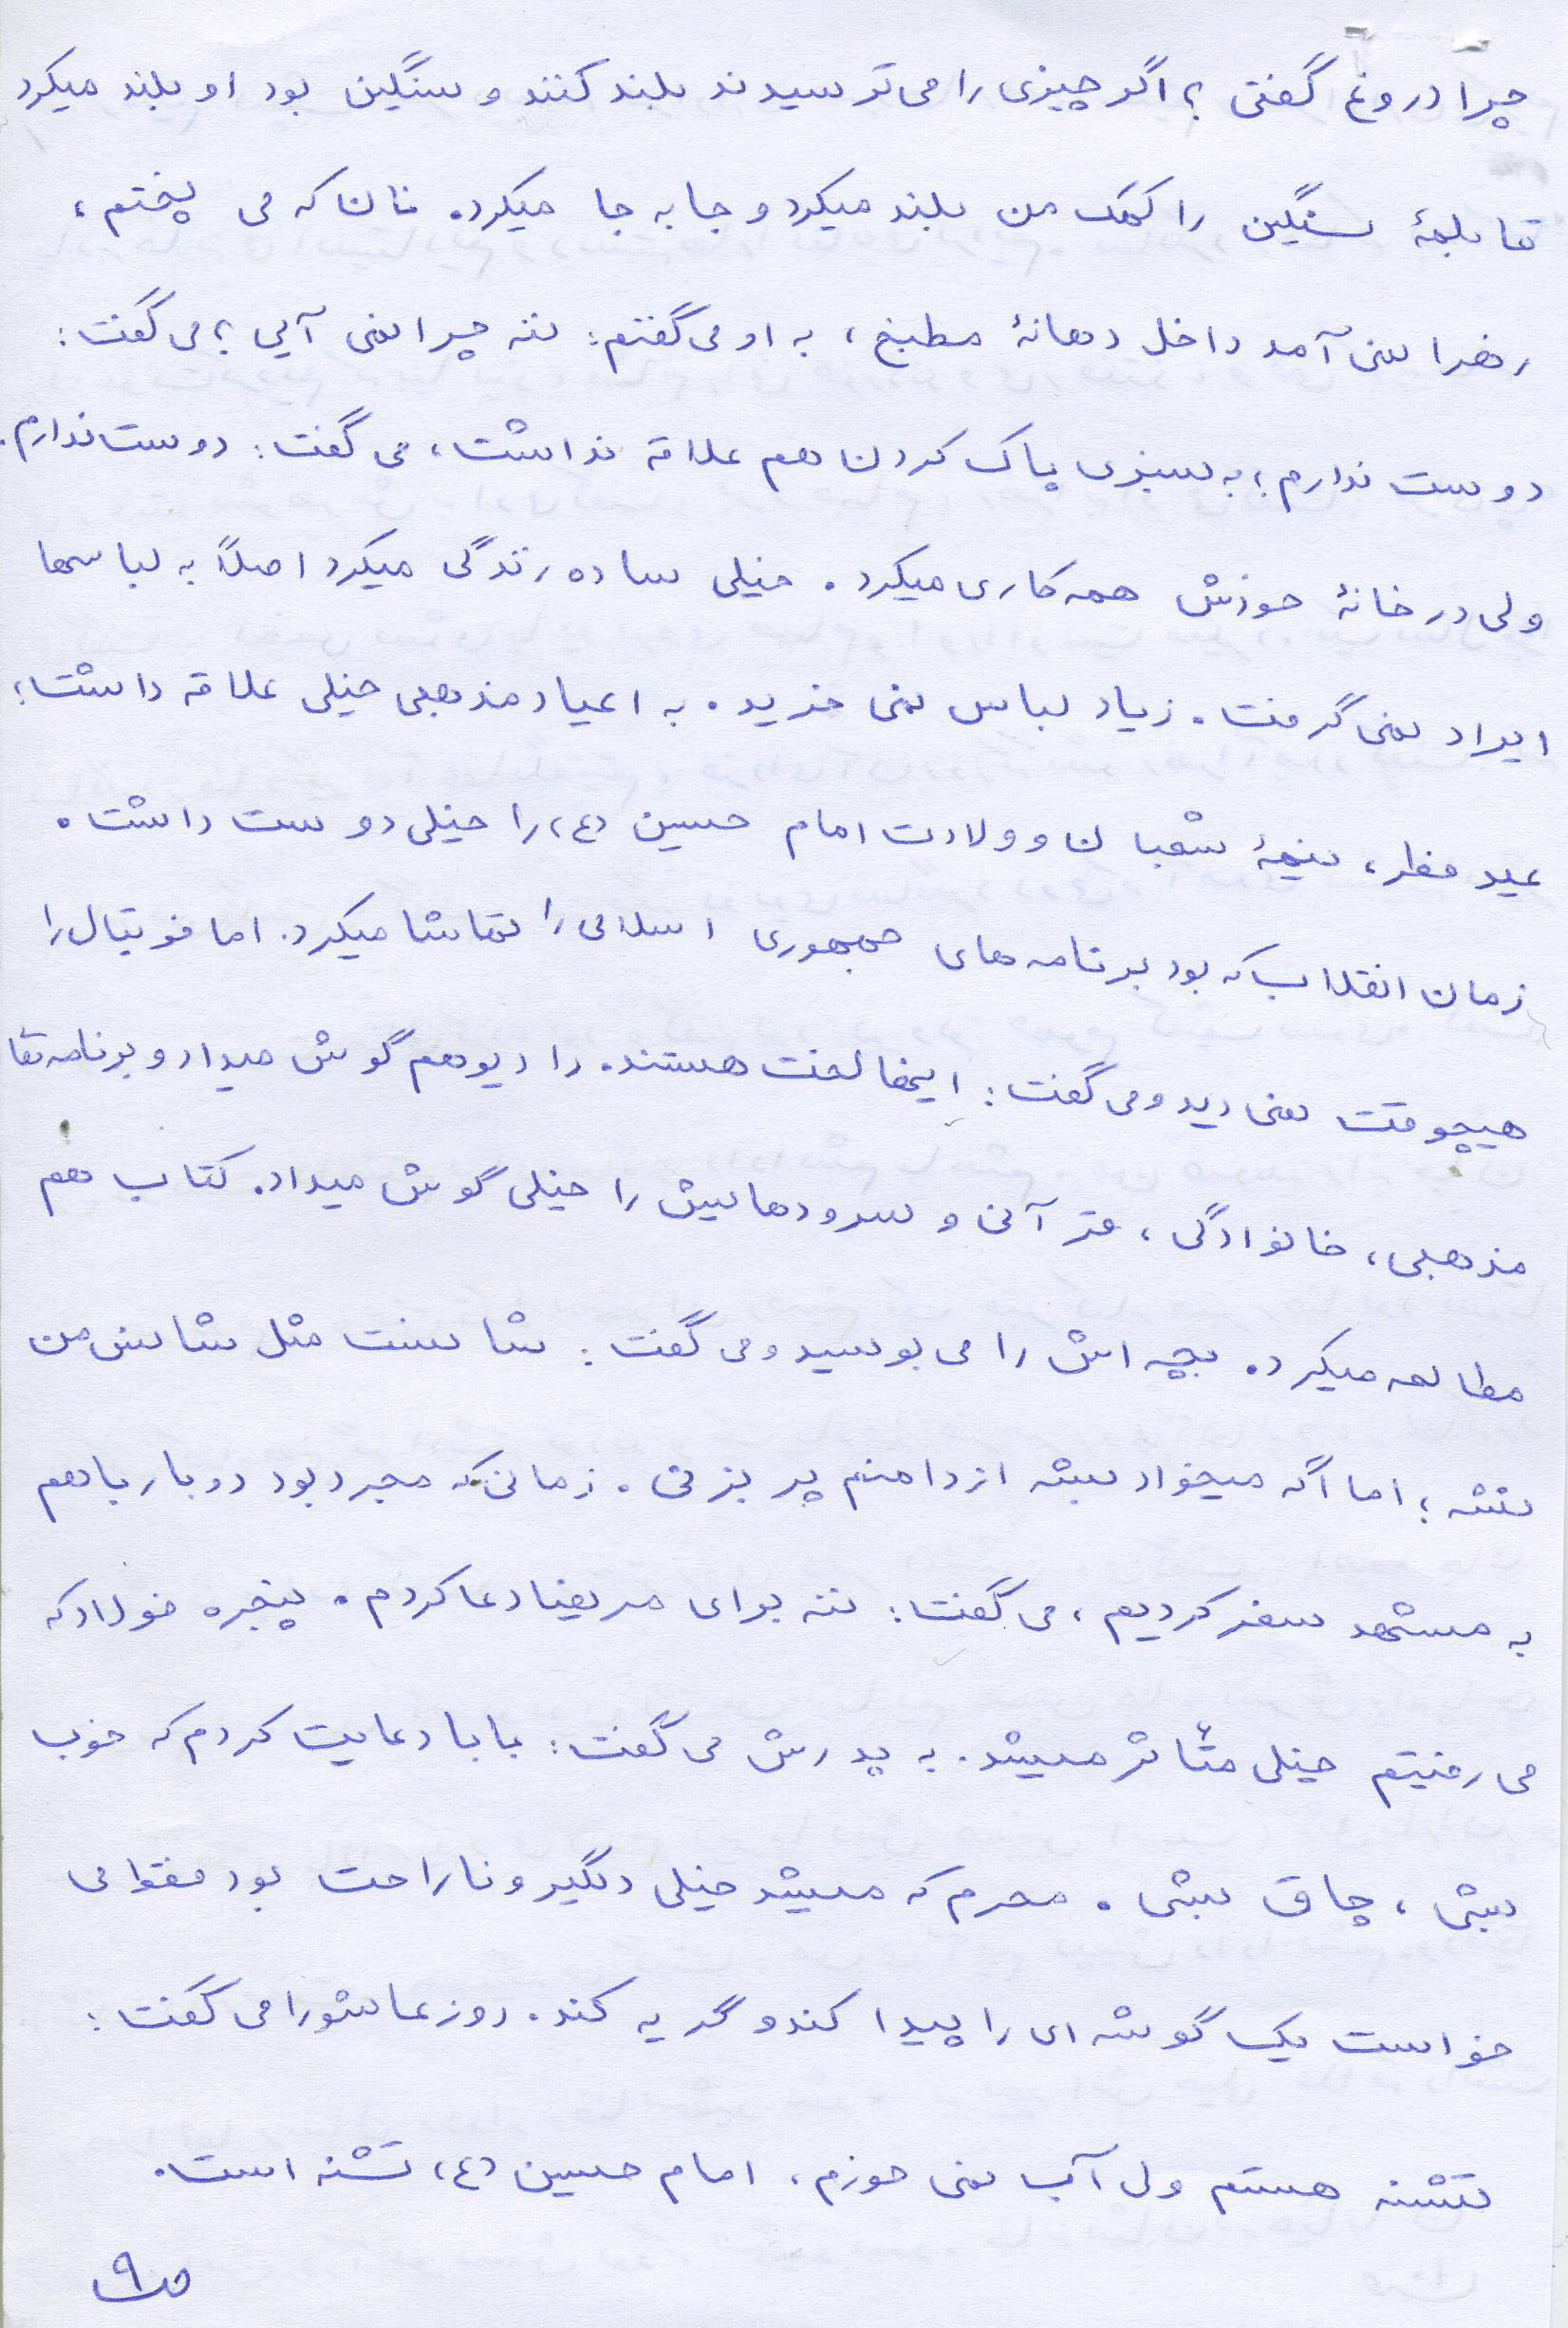 چرا دروغ گفتی؟ اگر چیزی را می ترسیدند بلند کنند و سنگین بود او بلند میکرد
قابلمهٔ سنگین را کمک من بلند میکرد و جا به جا میکرد. نان که می پختم،
رضا نمی آمد داخل دهانهٔ مطبخ، به او می گفتم: ننه چرا نمی آیی؟ می گفت:
دوست ندارم؛ به سبزی پاک کردن هم علاقه نداشت، می گفت: دوست ندارم.
ولی در خانهٔ خودش همه کاری میکرد. خیلی ساده زندگی میکرد اصلاً به لباسها
ایراد نمی گرفت. زیاد لباس نمی خرید. به اعیاد مذهبی خیلی علاقه داشت؛
عید فطر، نیمهٔ شعبان و ولادت امام حسین (ع) را خیلی دوست داشت.
زمان انقلاب که بود برنامه های جمهوری اسلامی را تماشا میکرد. اما فوتبال را
هیچوقت نمی دید و می گفت: اینها لخت هستند. رادیو هم گوش میداد و برنامه های
مذهبی، خانوادگی، قرآنی و سرودهایش را خیلی گوش میداد. کتاب هم
مطالعه میکرد. بچه اش را می بوسید و می گفت: شانست مثل شانس من
نشه؛ اما اگه میخواد بشه از دامنم پر بزنی. زمانی که مجرد بود دوبار با هم
به مشهد سفر کردیم، می گفت: ننه برای مریضا دعا کردم. پنجره فولاد که
می رفتیم خیلی متأثر میشد. به پدرش می گفت: بابا دعایت کردم که خوب
بشی، چاق بشی. محرم که میشد خیلی دلگیر و ناراحت بود فقط می
خواست یک گوشه ای را پیدا کند و گریه کند. روز عاشورا می گفت:
تشنه هستم ولی آب نمی خورم، امام حسین (ع) تشنه است.
ص۹